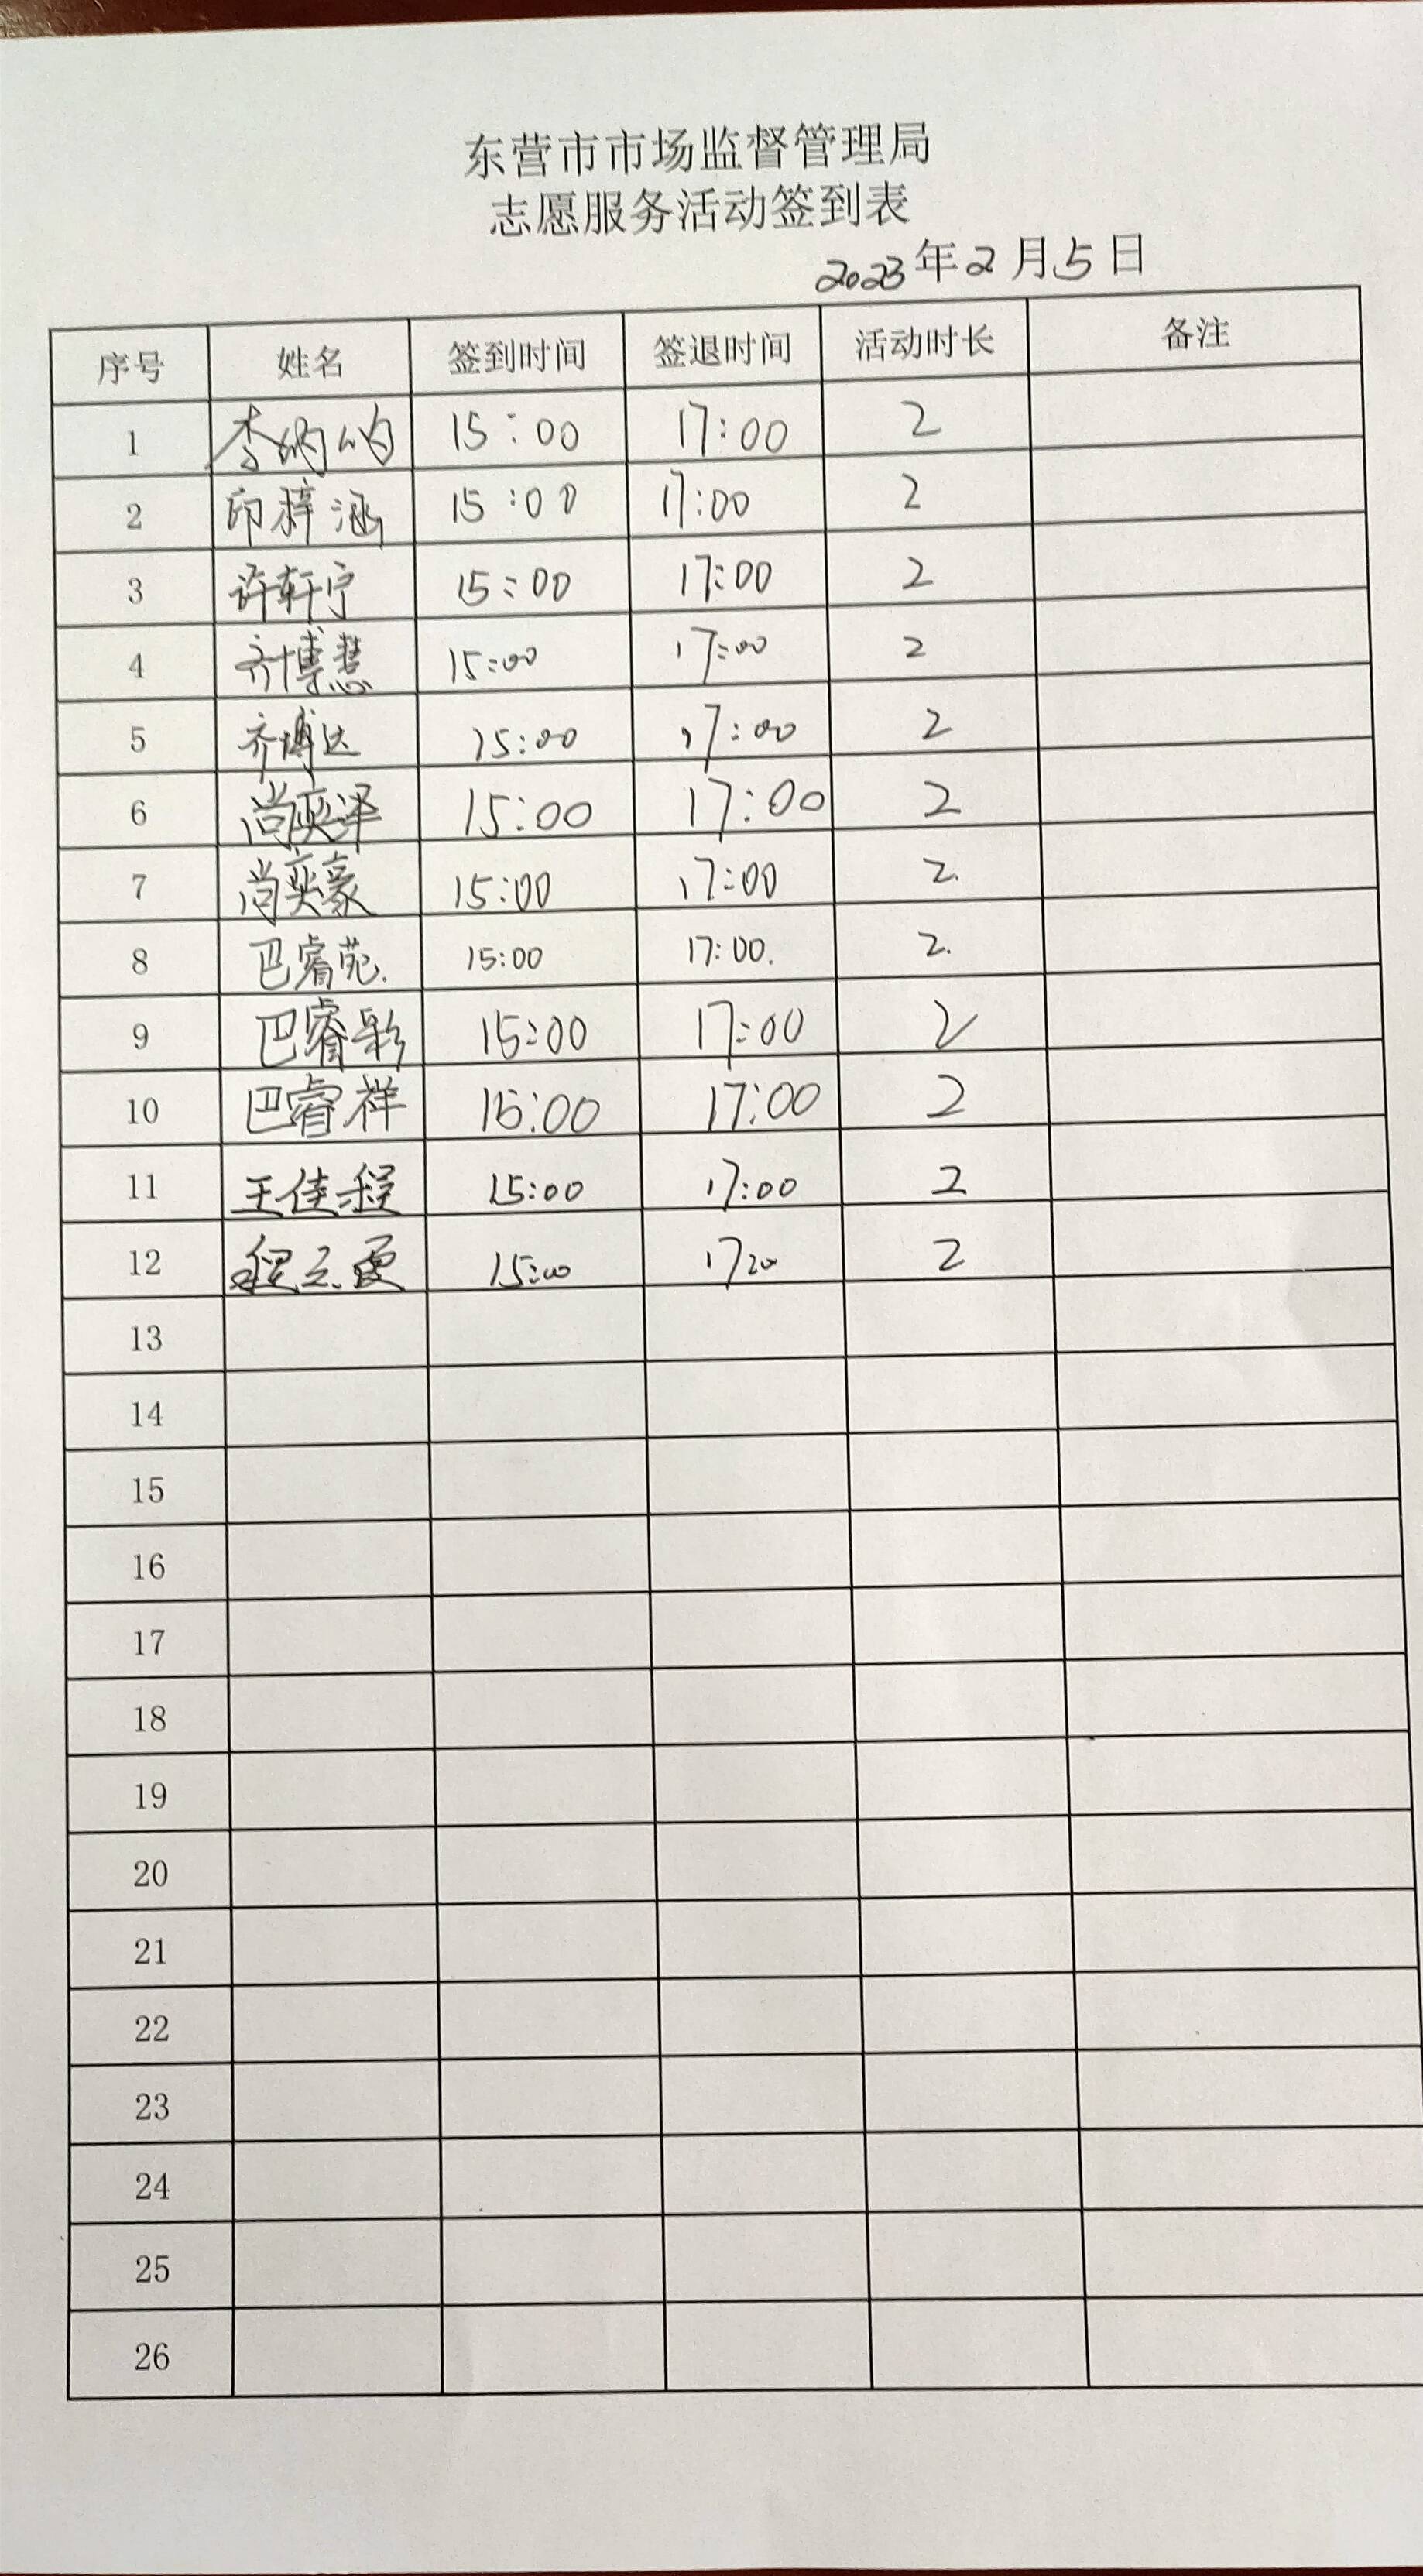 东营市市场监督管理局
志愿服务活动签到表
2023年2月5日
序号 姓名 签到时间 签退时间 活动时长 备注
1 李 15:00 17:00 2
2 印梓涵 15:00 17:00 2
3 许轩宁 15:00 17:00 2
4 齐博慧 15:00 17:00 2
5 齐博达 15:00 17:00 2
6 尚奕泽 15:00 17:00 2
7 尚奕豪 15:00 17:00 2.
8 巴睿苑. 15:00 17:00. 2.
9 巴睿彩 15:00 17:00 2
10 巴睿祥 15:00 17:00 2
11 王佳程 15:00 17:00 2
12 程 15:00 2
13
14
15
16
17
18
19
20
21
22
23
24
25
26